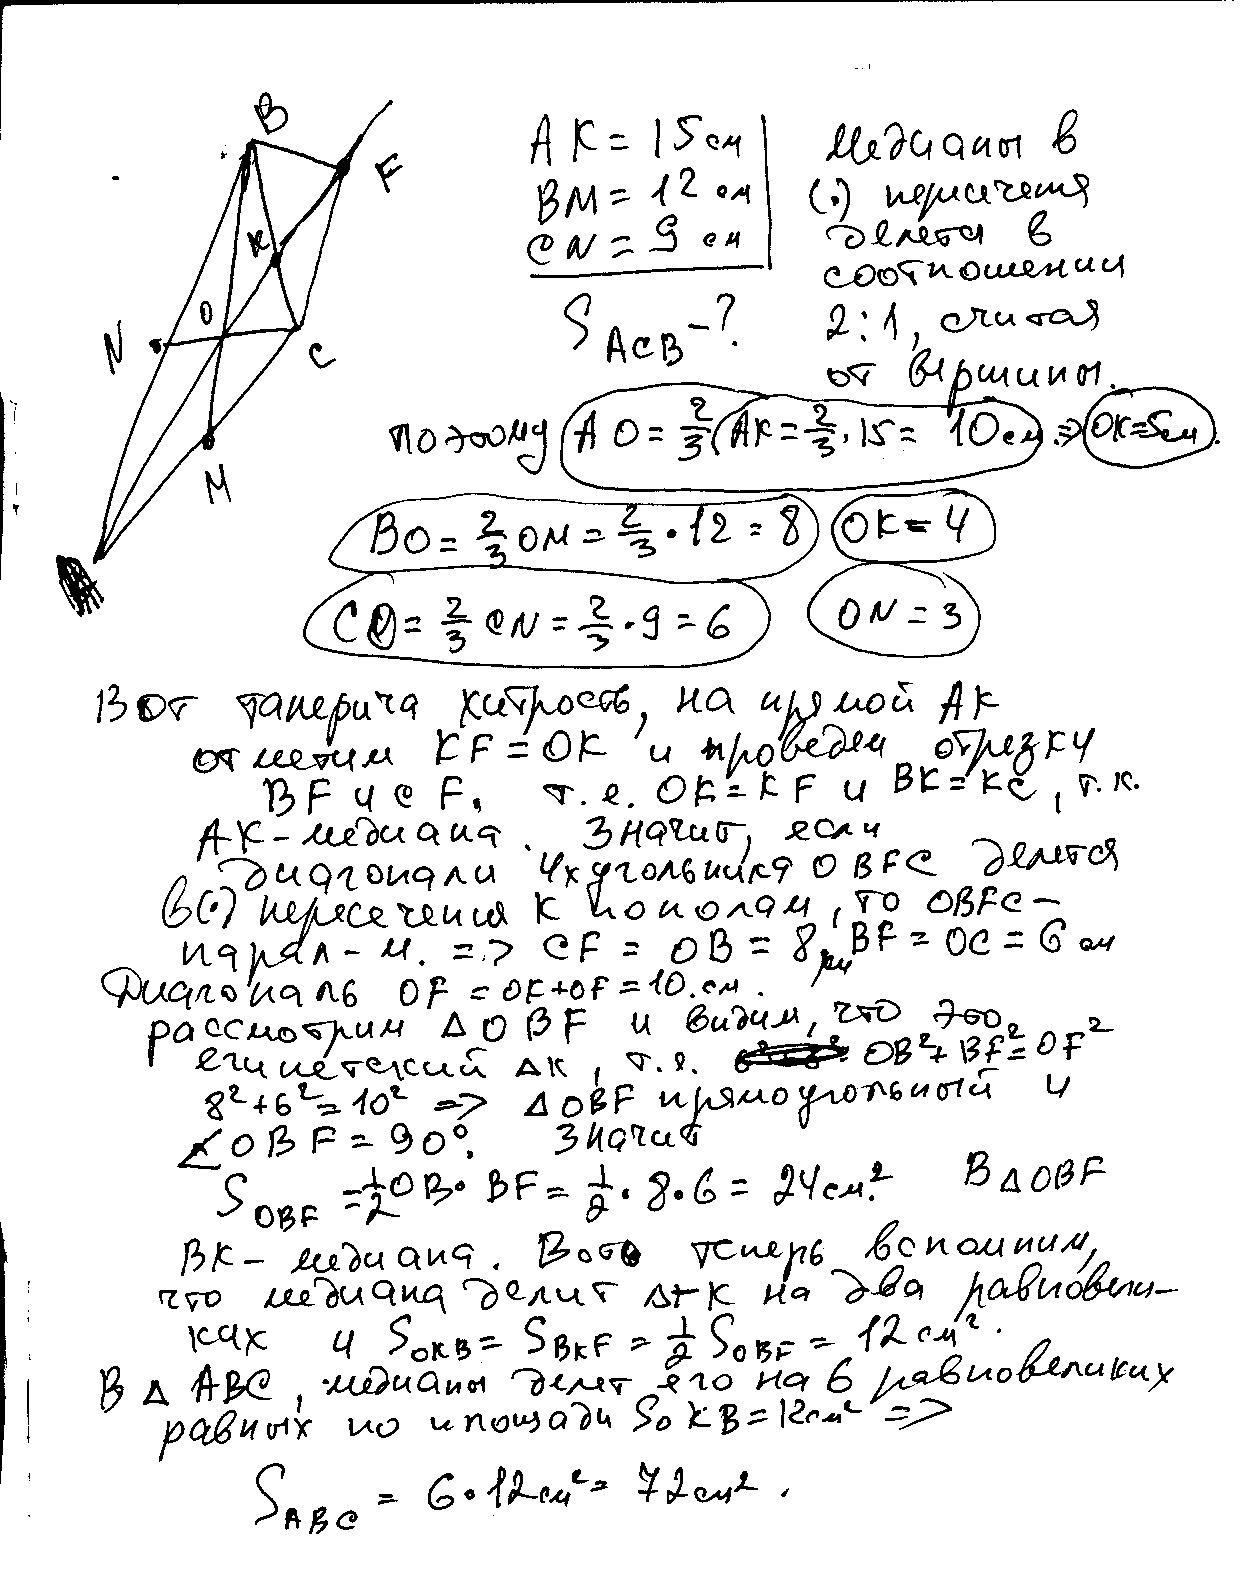 B
F
K
O
N
C
M
A
AK = 15 см
BM = 12 см
CN = 9 см
S ACB - ?
Медианы в
(.) пересечения
делятся в
соотношении
2:1, считая
от вершины.
поэтому AO = 2/3 (AK = 2/3 · 15 = 10 см => OK = 5 см.
BO = 2/3 OM = 2/3 · 12 = 8 OK = 4
CO = 2/3 CN = 2/3 · 9 = 6 ON = 3
Вот таперича хитрость, на прямой AK
отметим KF = OK и проведем отрезки
BF и CF. т.е. OK = KF и BK = KC, т.к.
AK - медиана. Значит, если
диагонали 4хугольника OBFC делятся
в (.) пересечения K пополам, то OBFC -
парал-м. => CF = OB = 8 см BF = OC = 6 см
Диагональ OF = OK + OF = 10. см.
рассмотрим Δ OBF и видим, что это
египетский Δк, т.е. OB² + BF² = OF²
8² + 6² = 10² => Δ OBF прямоугольный и
∠OBF = 90°. Значит
S OBF = 1/2 OB · BF = 1/2 · 8 · 6 = 24 см². В Δ OBF
BK - медиана. Вот теперь вспомним,
что медиана делит Δ-к на два равновели-
ких и S OKB = S BKF = 1/2 S OBF = 12 см².
В Δ ABC, медианы делят его на 6 равновеликих
равных по площади S OKB = 12 см² =>
S ABC = 6 · 12 см² = 72 см².